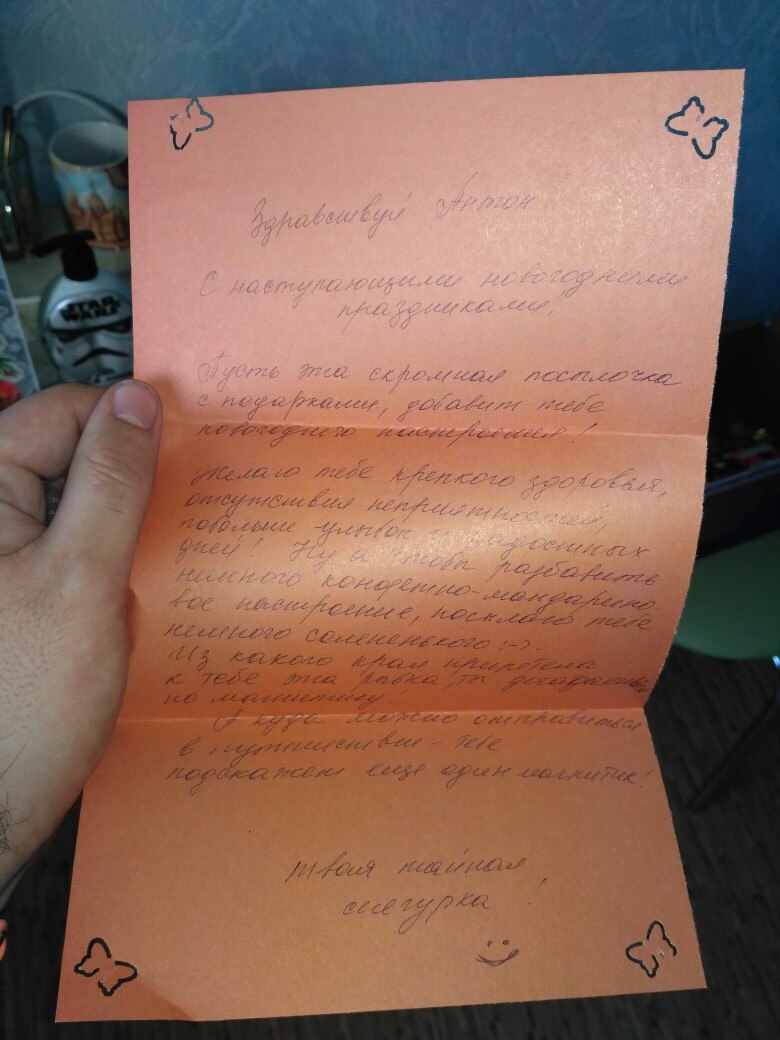 STAR
WARS
Здравствуй Антон!
С наступающими новогодними
праздниками,
Пусть эта скромная посылочка
с подарками, добавит тебе
новогоднего настроения!
Желаю тебе крепкого здоровья,
отсутствия неприятностей,
побольше улыбок и радостных
дней! Ну а чтобы разбавить
немного конфетно-мандарино-
вое настроение, посылаю тебе
немного солененького :-).
Из какого края прилетела
к тебе эта рыбка ты догадаешься
по магнитику!
А куда можно отправиться
в путешествие - тебе
подскажет еще один магнитик!
твоя тайная
снегурка!